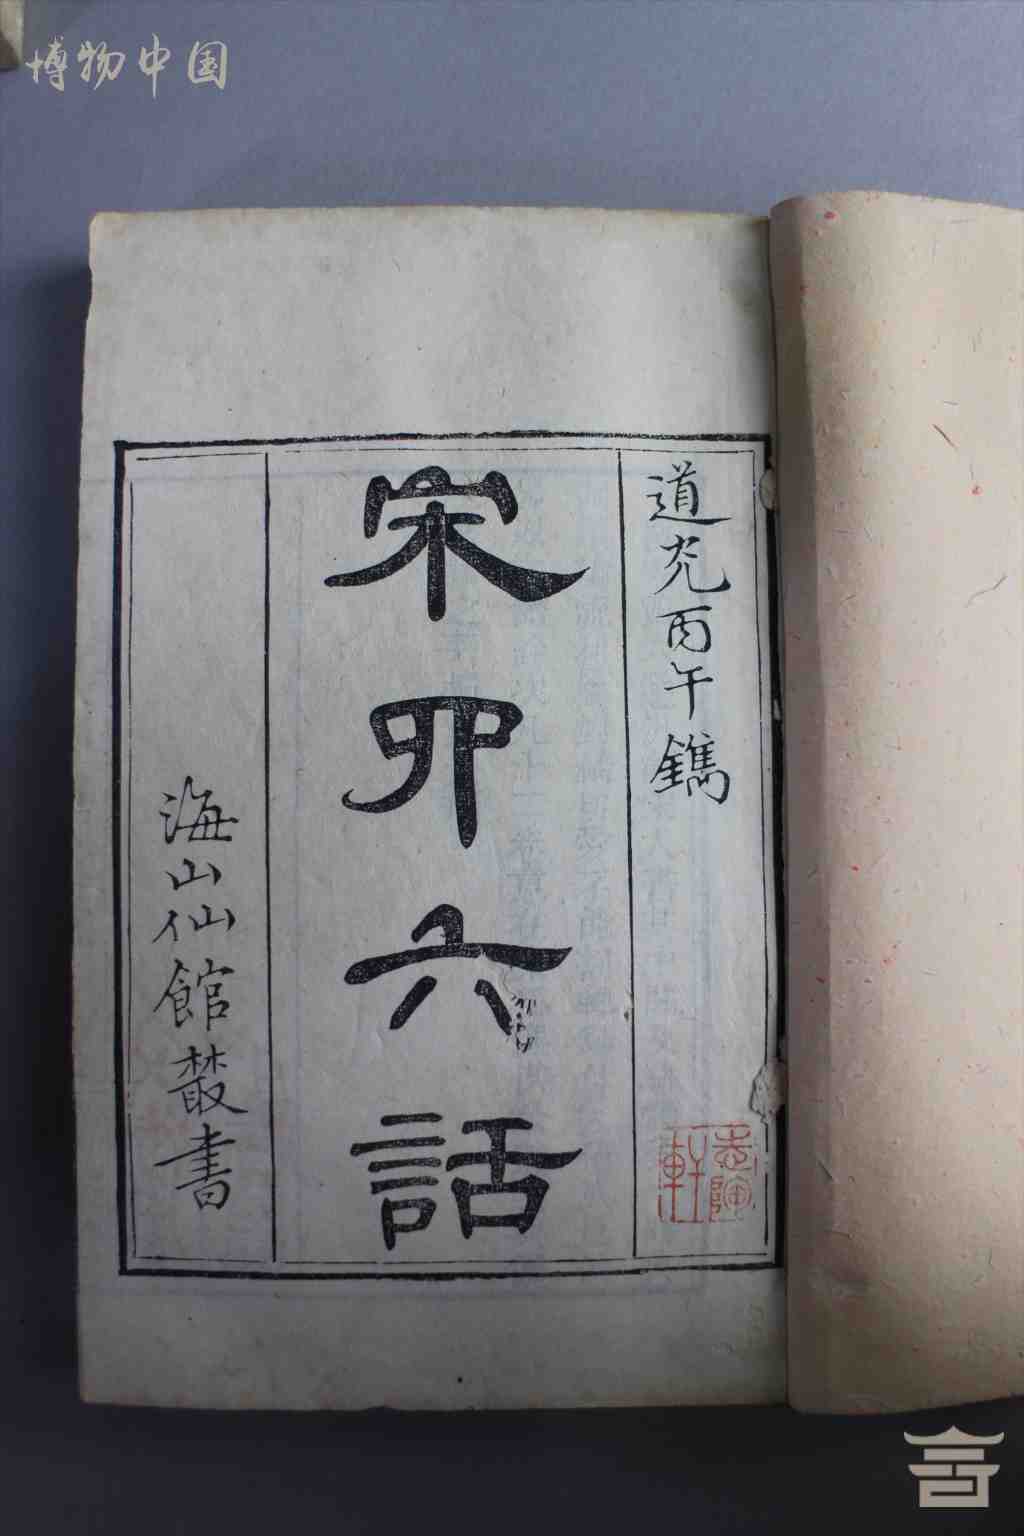 博物中国
道光丙午鐫
宋四六話
海山仙館叢書